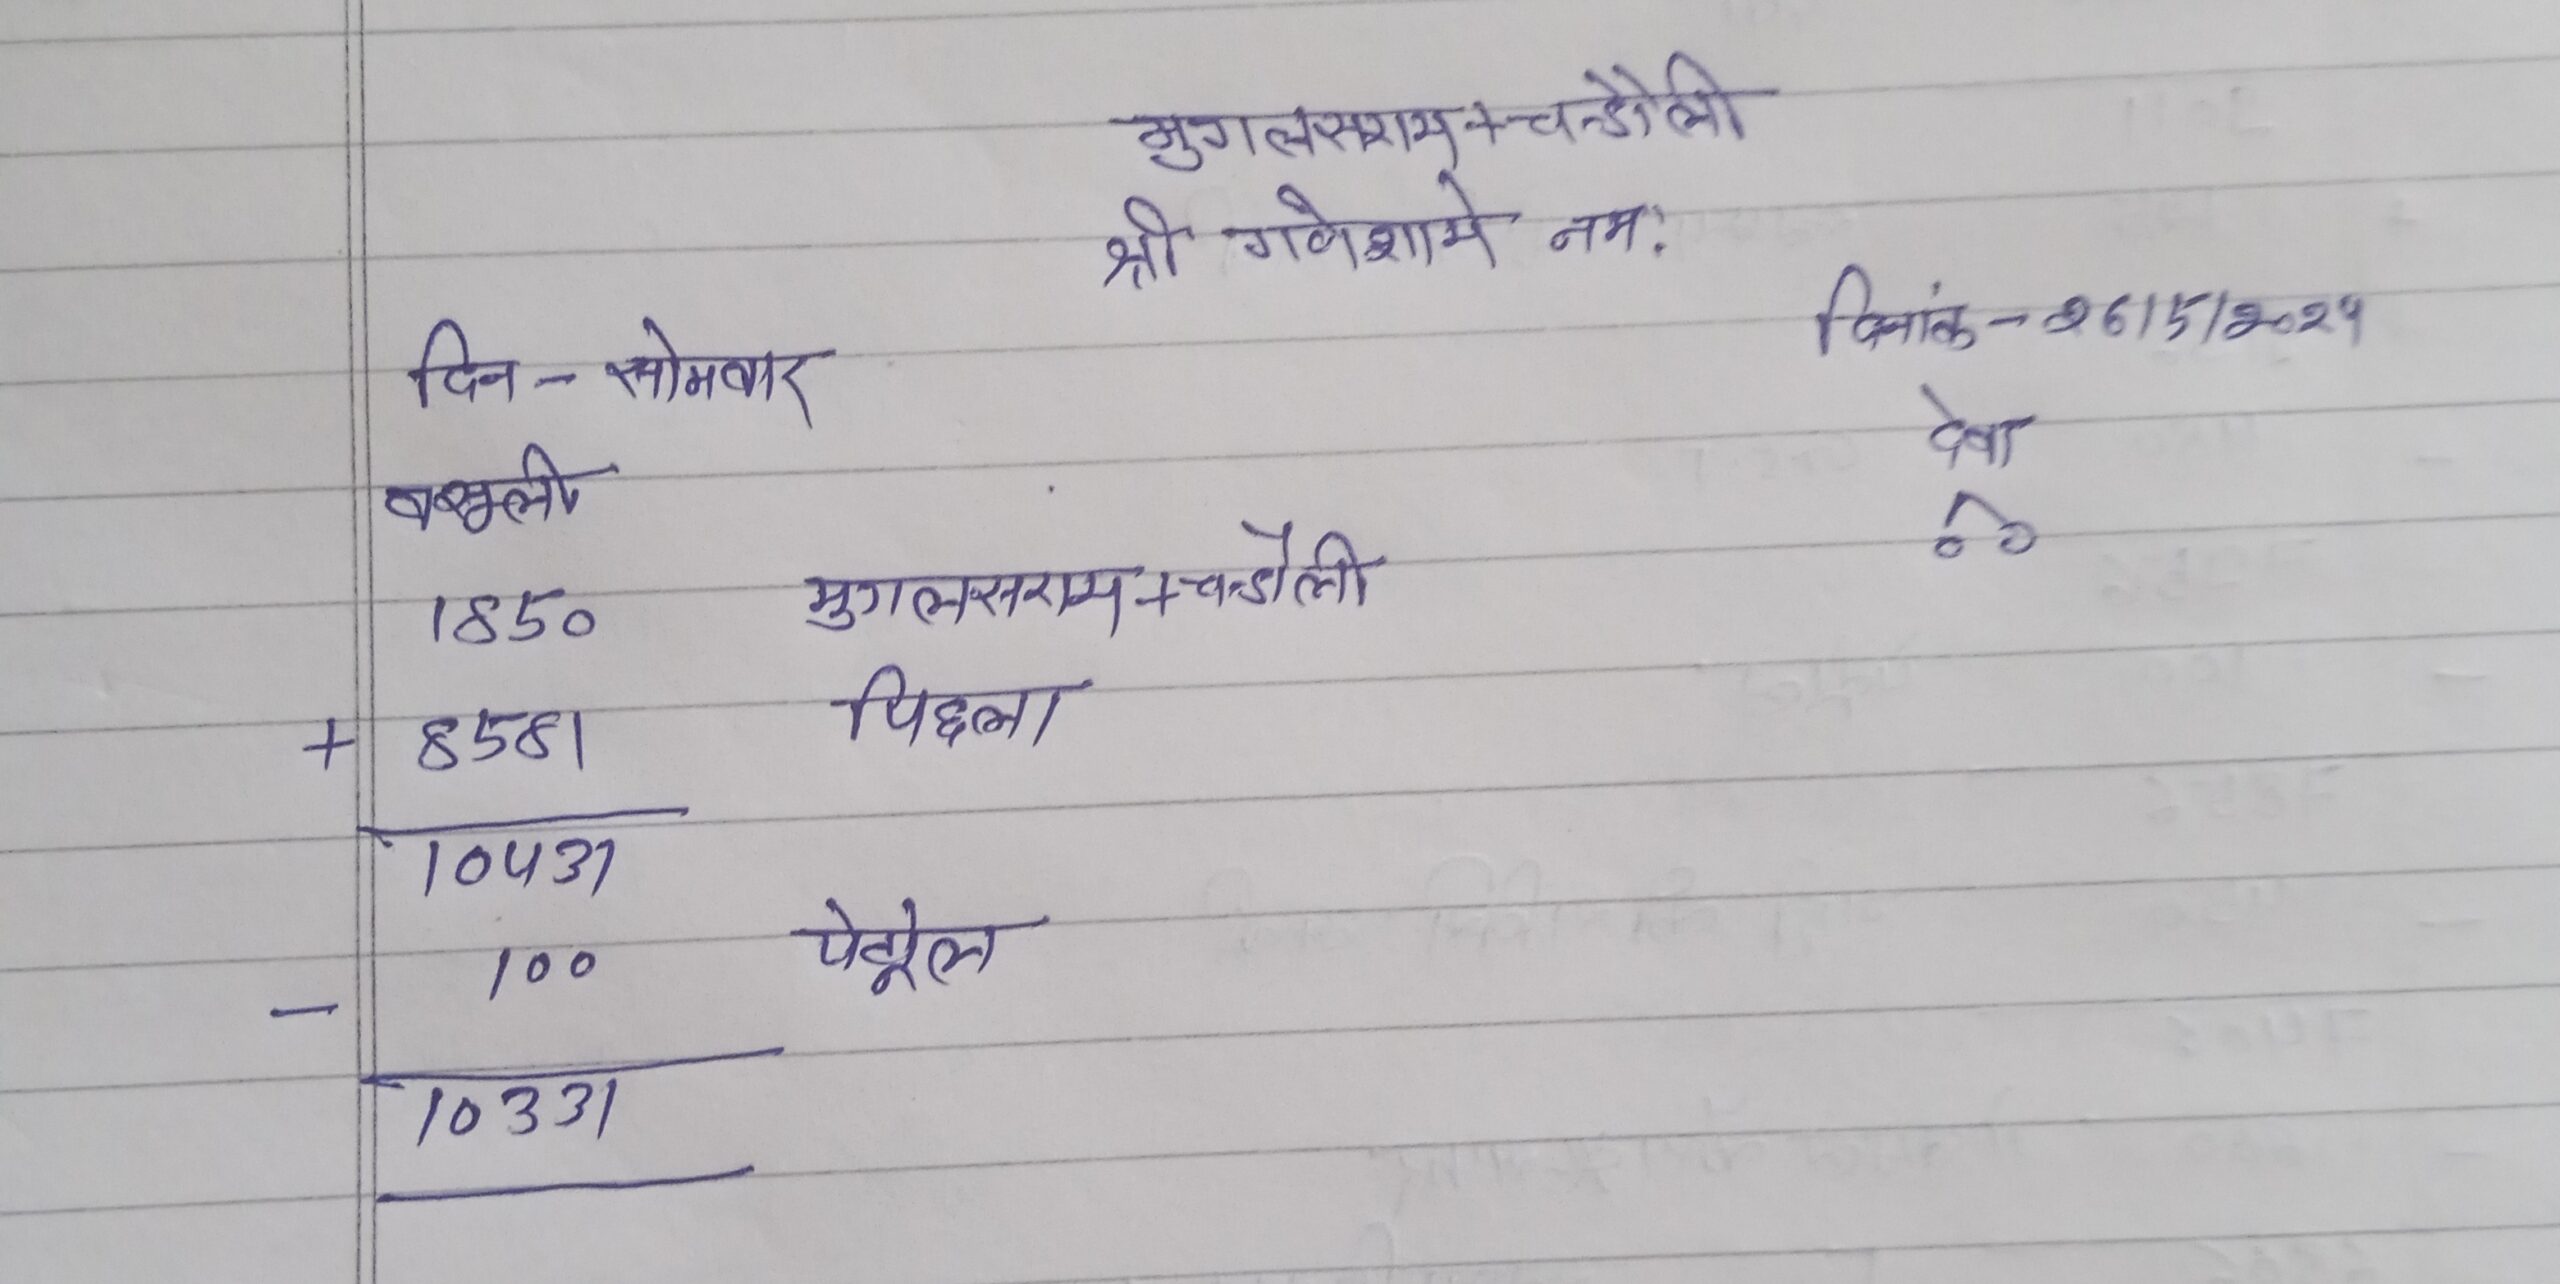 मुगलसराय + चन्डौली
श्री गणेशाये नमः
दिनांक - 26/5/2025
दिन - सोमवार
देवा
वसूली
1850 मुगलसराय + चन्डौली
+ 8581 पिछला
10431
- 100 पेट्रोल
10331